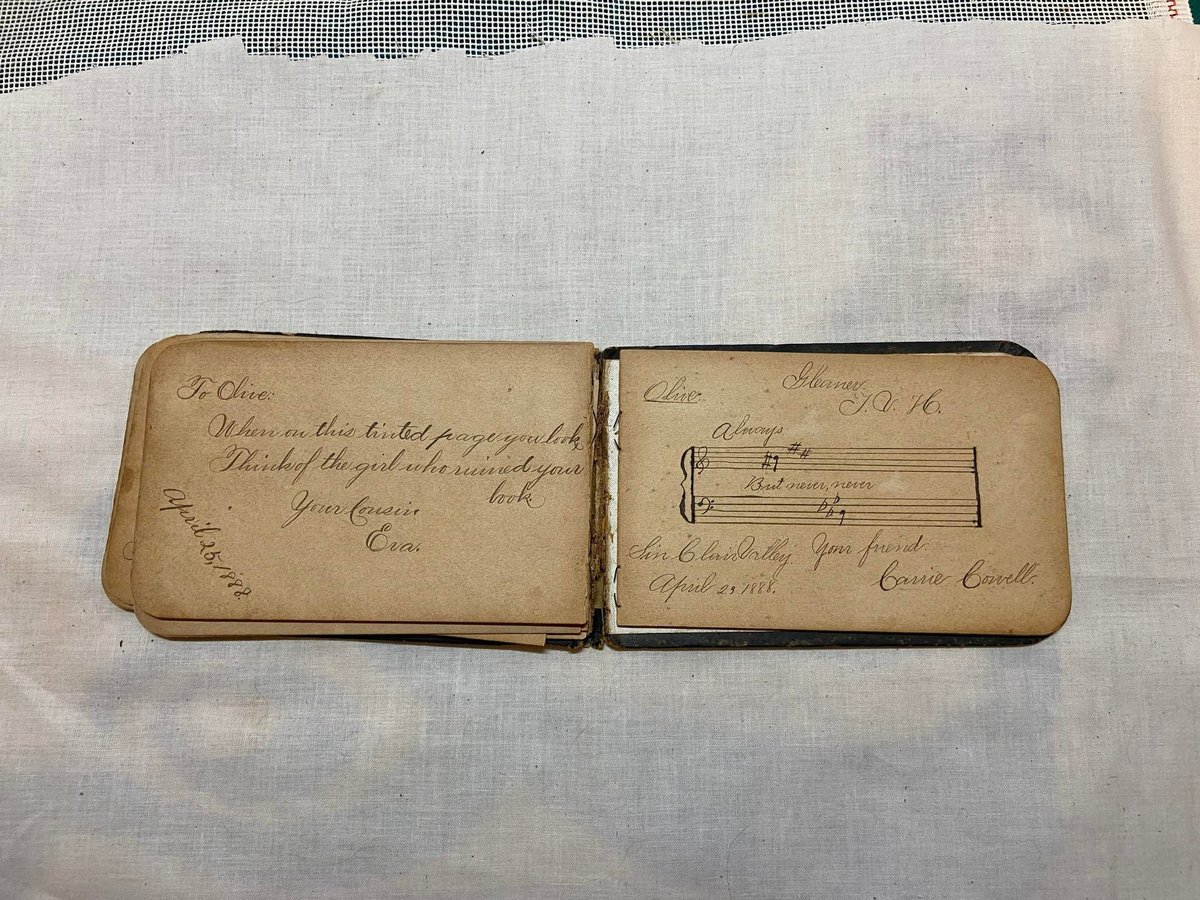 To Olive:
When on this tinted page you look,
Think of the girl who ruined your
book
Your Cousin
Eva.
April 25, 1888
Gleaner.
Olive.
T. V. H.
Always
But never, never
Sin Clair Valley Your friend.
April 23 1888. Carrie Cowell.